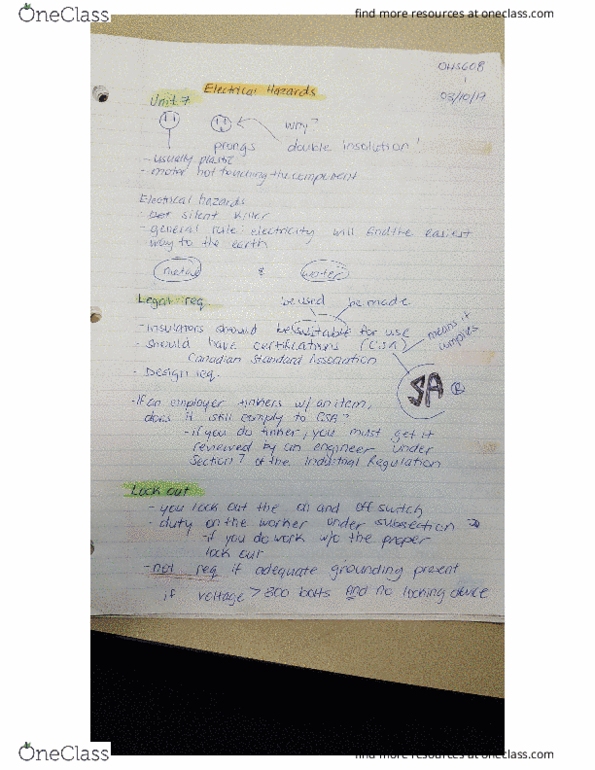 OneClass
find more resources at oneclass.com
OHS608
1
03/10/17
Electrical Hazards
Unit 7
why?
prongs double insolution!
- usually plastic
- motor not touching the component
Electrical hazards
- silent killer
- general rule: electricity will find the easiest
way to the earth
metal & water
Legal req. be used be made
- insulators should be suitable for use
- should have certifications (CSA)
means it complies
Canadian Standard Association
- Design req.
SA ®
- If an employer tinkers w/ an item,
does it still comply to CSA?
- if you do tinker, you must get it
reviewed by an engineer under
Section 7 of the Industrial Regulation
Lock out
- you lock out the on and off switch
- duty on the worker under subsection
- if you do work w/o the proper
lock out
- not req if adequate grounding present
if voltage > 300 bolts and no locking device
OneClass
find more resources at oneclass.com